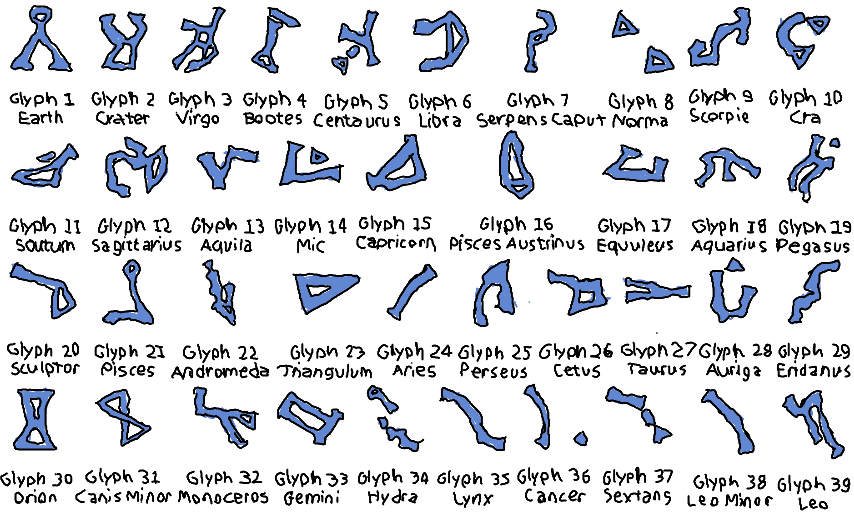 Glyph 1 Glyph 2 Glyph 3 Glyph 4 Glyph 5 Glyph 6 Glyph 7 Glyph 8 Glyph 9 Glyph 10
Earth Crater Virgo Bootes Centaurus Libra Serpens Caput Norma Scorpie Cra
Glyph 11 Glyph 12 Glyph 13 Glyph 14 Glyph 15 Glyph 16 Glyph 17 Glyph 18 Glyph 19
Scutum Sagittarius Aquila Mic Capricorn Pisces Austrinus Equuleus Aquarius Pegasus
Glyph 20 Glyph 21 Glyph 22 Glyph 23 Glyph 24 Glyph 25 Glyph 26 Glyph 27 Glyph 28 Glyph 29
Sculptor Pisces Andromeda Triangulum Aries Perseus Cetus Taurus Auriga Eridanus
Glyph 30 Glyph 31 Glyph 32 Glyph 33 Glyph 34 Glyph 35 Glyph 36 Glyph 37 Glyph 38 Glyph 39
Orion Canis Minor Monoceros Gemini Hydra Lynx Cancer Sextans Leo Minor Leo